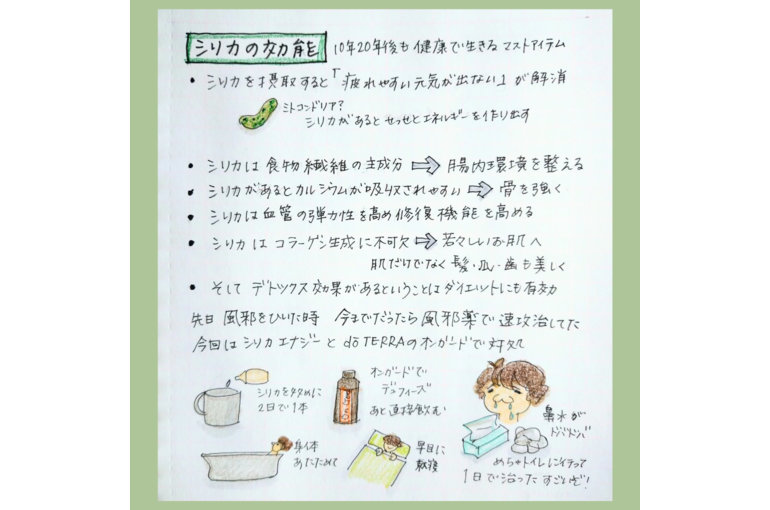 シリカの効能 10年20年後も健康で生きるマストアイテム
・シリカを摂取すると「疲れやすい元気が出ない」が解消
ミトコンドリア?
シリカがあるとせっせとエネルギーを作り出す
・シリカは食物繊維の主成分 ⇨ 腸内環境を整える
・シリカがあるとカルシウムが吸収されやすい ⇨ 骨を強く
・シリカは血管の弾力性を高め修復機能を高める
・シリカはコラーゲン生成に不可欠 ⇨ 若々しいお肌へ
肌だけでなく髪・爪・歯も美しく
・そしてデトックス効果があるということはダイエットにも有効
先日 風邪をひいた時 今までだったら風邪薬で速攻治してた
今回はシリカエナジーとdōTERRAのオンガードで対処
シリカを多めに
2日で1本
オンガードで
デュフィーズ
あと直接飲む
鼻水が
ドバドバ
身体
あたためて
早目に
就寝
めちゃトイレに行って
1日で治った すごいぞ!